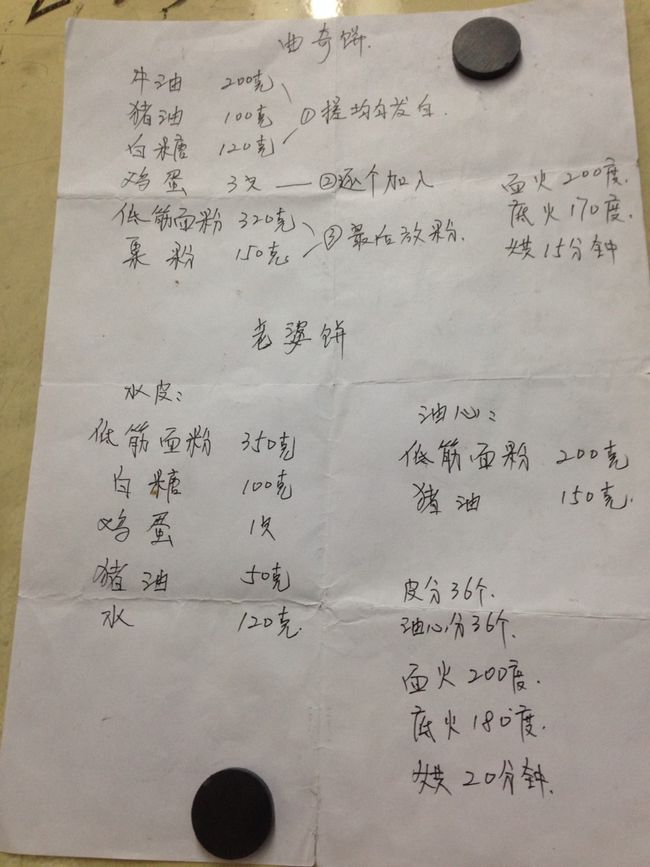 曲奇饼.
牛油 200克
猪油 100克 ①搓均匀发白.
白糖 120克
鸡蛋 3只 — ②逐个加入
低筋面粉 320克
粟粉 150克 ③最后放粉.
面火 200度.
底火 170度.
烘 15分钟
老婆饼
水皮:
低筋面粉 350克
白糖 100克
鸡蛋 1只
猪油 50克
水 120克.
油心:
低筋面粉 200克
猪油 150克.
皮分36个.
油心分36个.
面火 200度.
底火 180度.
烘 20分钟.